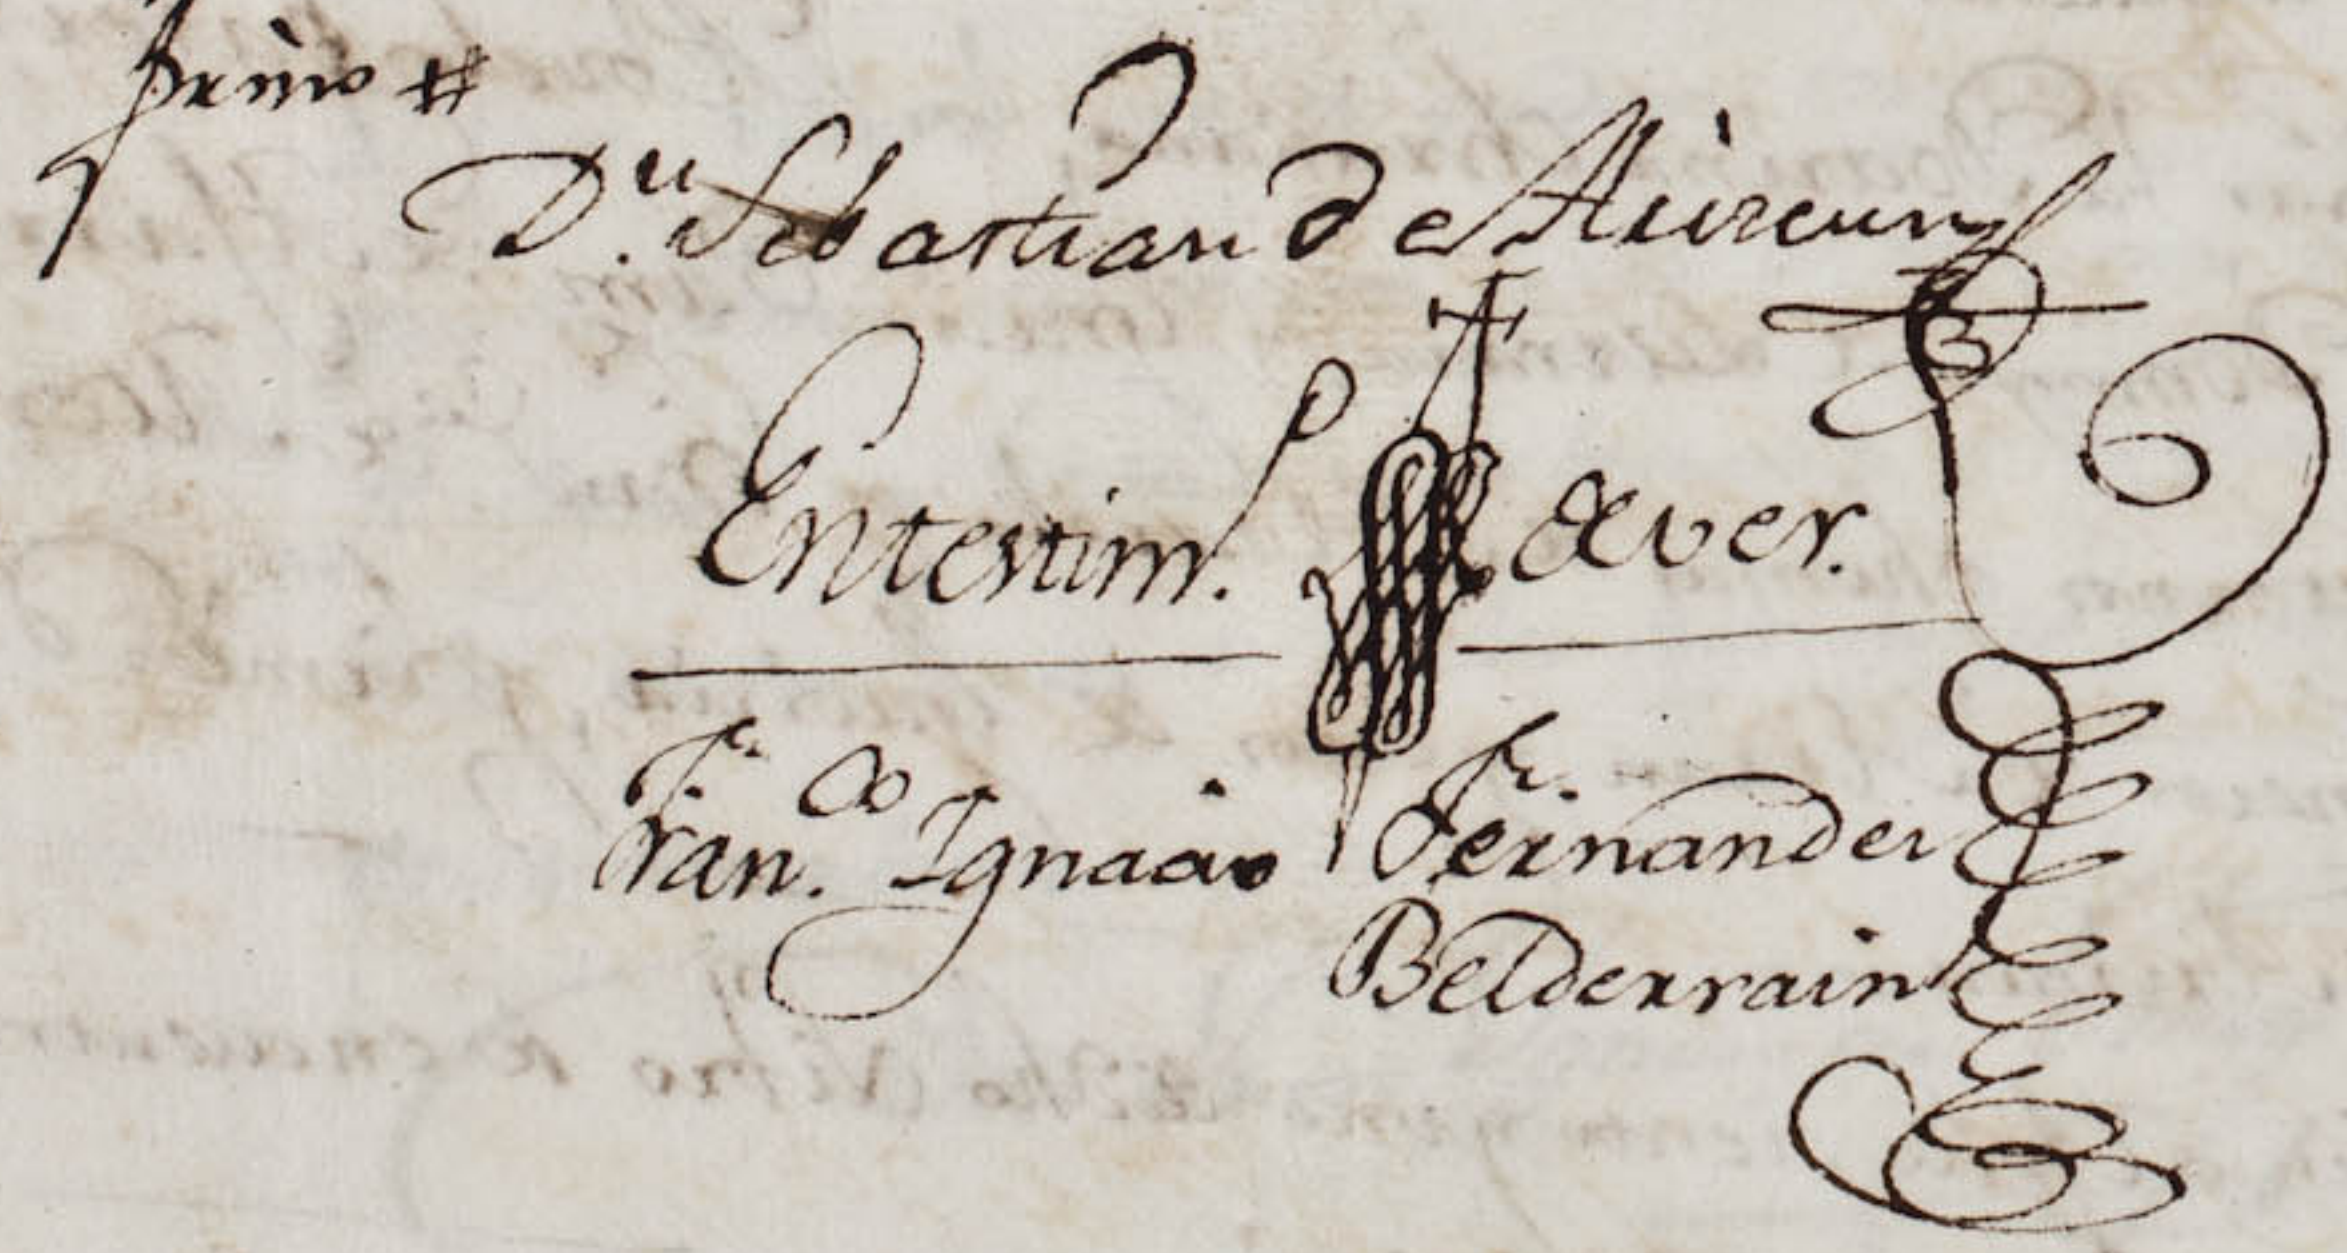 primo #
Dn. Sebastian de
En testim. de ver.
Franco. Ignacio Fernandez
Belderrain